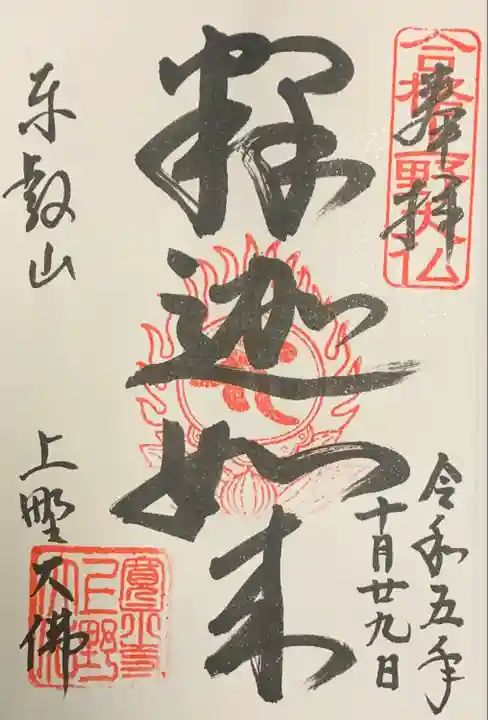 奉拝
合格上野大仏
令和五年
十月廿九日
釈迦如来
東叡山
上野大佛
寛永寺
上野
大佛